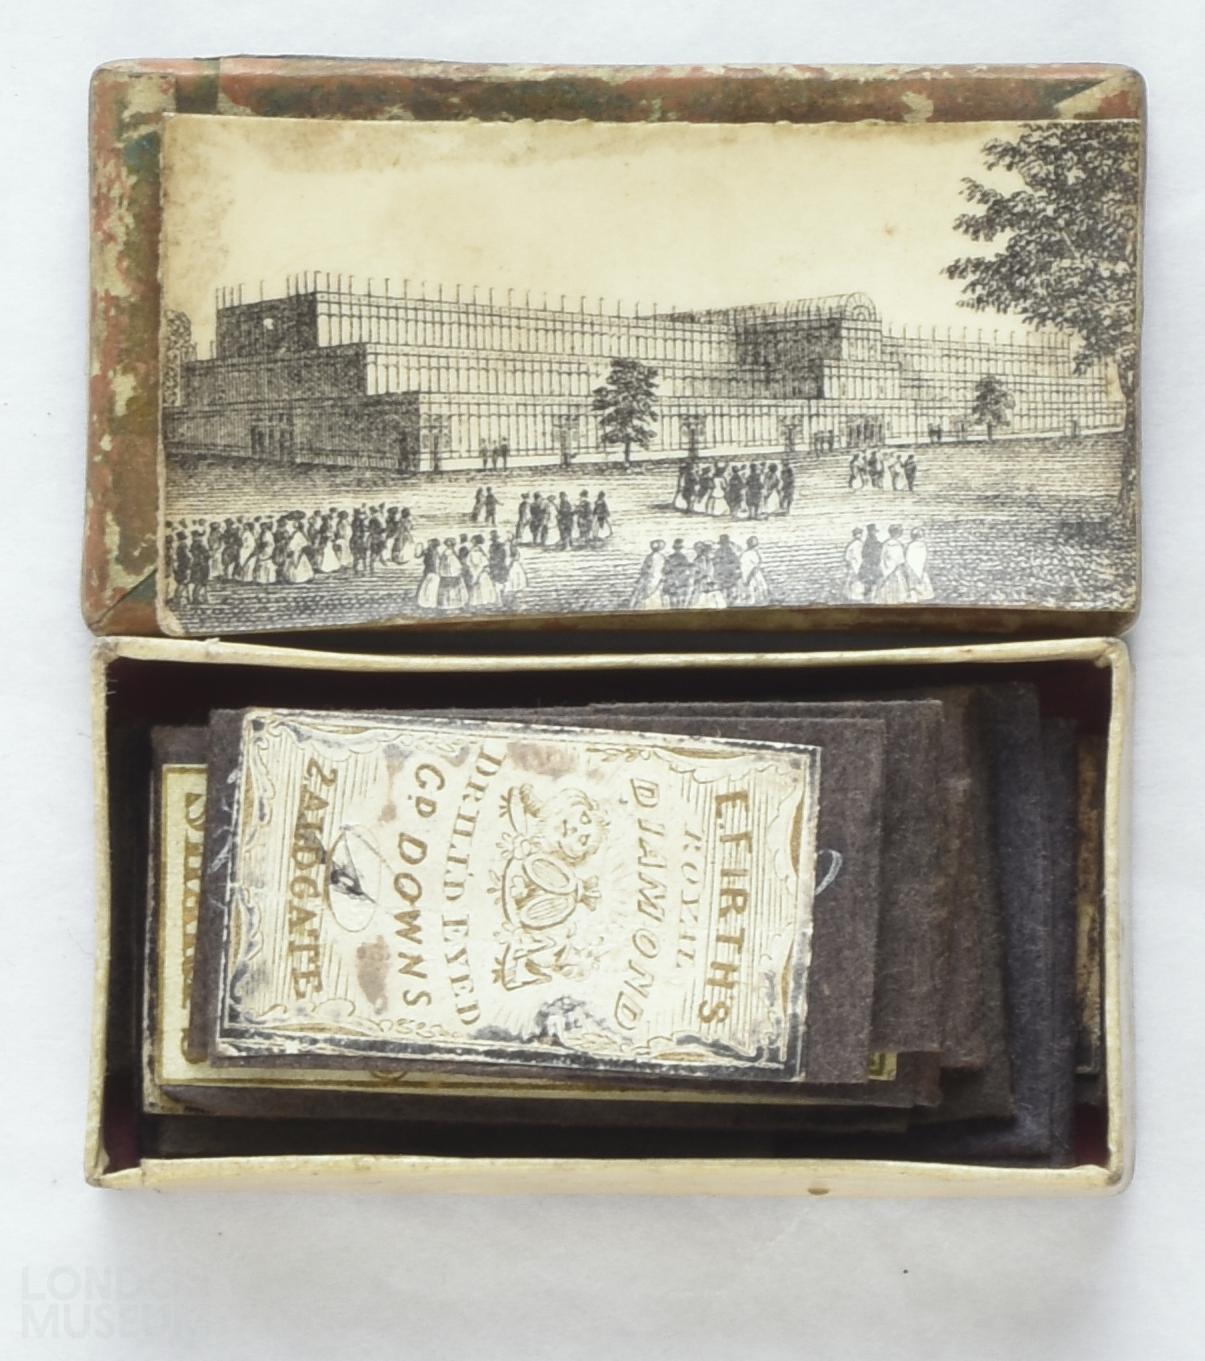 E. FIRTH'S
ROYAL
DIAMOND
DRILL'D EYED
G.D DOWNS
SANDGATE
LONDON
MUSEUM